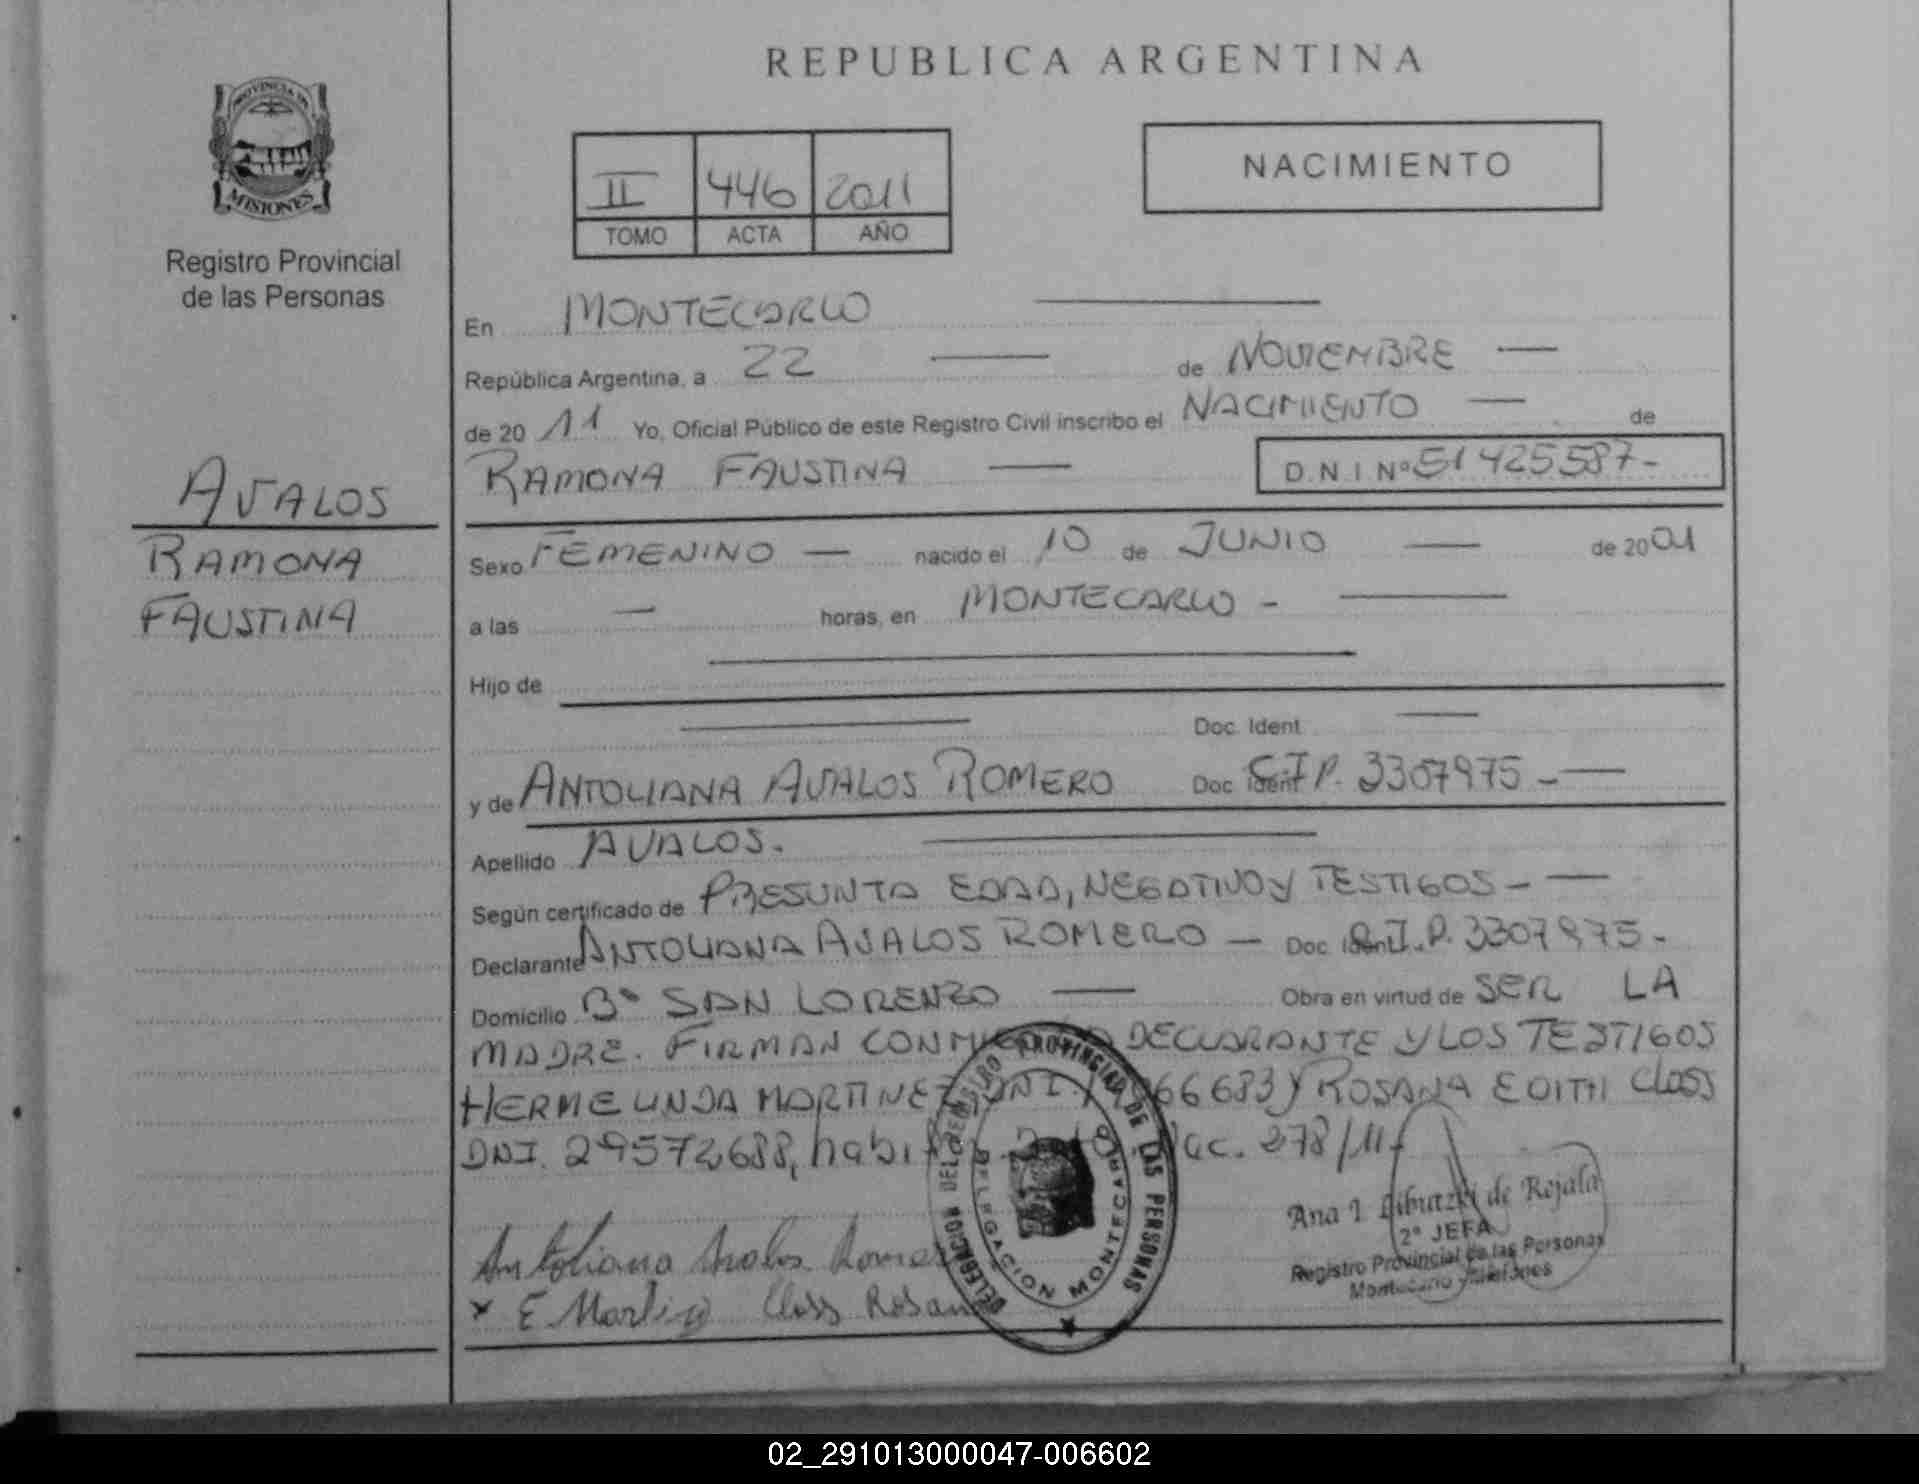 REPUBLICA ARGENTINA
PROVINCIA DE
MISIONES
Registro Provincial
de las Personas
II 446 2011
TOMO ACTA AÑO
NACIMIENTO
AVALOS
RAMONA
FAUSTINA
En MONTECARLO
República Argentina, a 22 de NOVIEMBRE
de 20 11 Yo, Oficial Público de este Registro Civil inscribo el NACIMIENTO de
RAMONA FAUSTINA D.N.I. Nº 51425587-
Sexo FEMENINO nacido el 10 de JUNIO de 2001
a las horas, en MONTECARLO -
Hijo de
Doc. Ident
y de ANTOLIANA AVALOS ROMERO Doc. Ident C.I.P. 3307975-
Apellido AVALOS.
Según certificado de PRESUNTA EDAD, NEGATIVO Y TESTIGOS-
Declarante ANTOLIANA AVALOS ROMERO - Doc. Ident C.I.P. 3307975-
Domicilio Bº SAN LORENZO Obra en virtud de SER LA
MADRE. FIRMAN CONMIGO DECLARANTE Y LOS TESTIGOS
HERMELINDA MARTINEZ DNI. 66683 y ROSANA EDITH Closs
DNI. 29572688, 278/11-
Antoliana Avalos Romero
x E Martinez Closs Rosana
DELEGACION DEL REGISTRO PROVINCIAL DE LAS PERSONAS
DELEGACION MONTECARLO
Ana I. de Rejala
2º JEFA
Registro Provincial de las Personas
Montecarlo Misiones
02_291013000047-006602